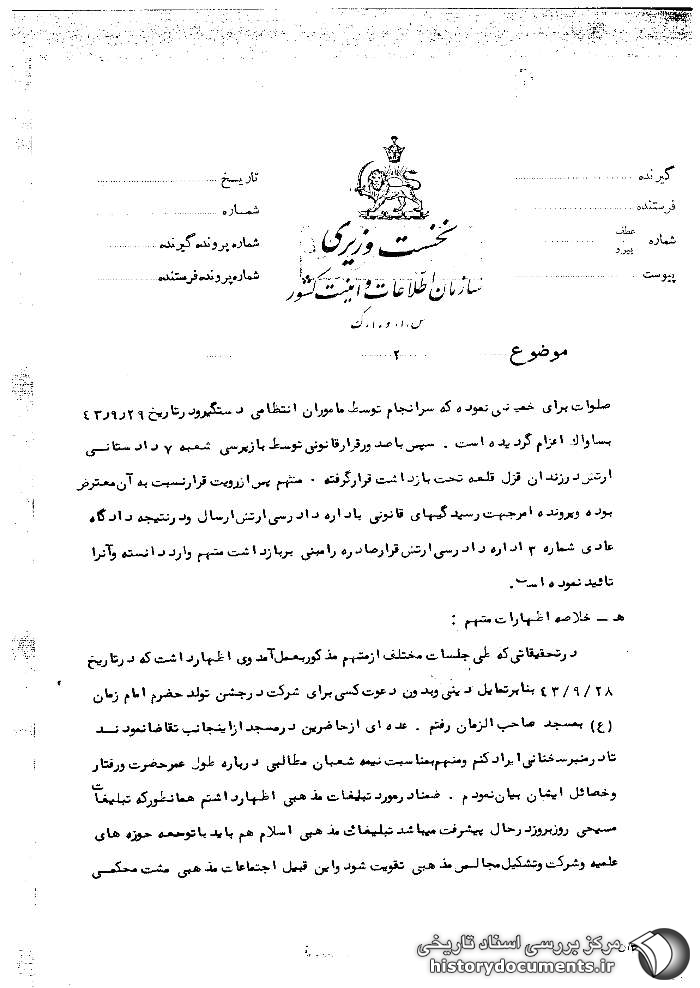 گیرنده
فرستنده
شماره عطف
پیرو
پیوست
نخست وزیری
سازمان اطلاعات و امنیت کشور
س.ا.و.ا.ك
تاریخ
شماره
شماره پرونده گیرنده
شماره پرونده فرستنده
موضوع ۲
صلوات برای خمینی نموده که سرانجام توسط ماموران انتظامی دستگیر و در تاریخ ۴۳/۹/۲۹
بساواك اعزام گردیده است . سپس با صدور قرار قانونی توسط بازپرسی شعبه ۷ دادستانی
ارتش در زندان قزل قلعه تحت بازداشت قرار گرفته . متهم پس از رویت قرار نسبت به آن معترض
بوده و پرونده امر جهت رسیدگیهای قانونی باداره دادرسی ارتش ارسال و در نتیجه دادگاه
عادی شماره ۳ اداره دادرسی ارتش قرار صادره را مبنی بر بازداشت متهم وارد دانسته و آنرا
تائید نموده است .
هـ – خلاصه اظهارات متهم :
در تحقیقاتی که طی جلسات مختلف از متهم مذکور بعمل آمد وی اظهار داشت که در تاریخ
۴۳/۹/۲۸ بنا بر تمایل دینی و بدون دعوت کسی برای شرکت در جشن تولد حضرم امام زمان
(ع) بمسجد صاحب الزمان رفتم . عده ای از حاضرین در مسجد از اینجانب تقاضا نمودند
تا در منبر سخنانی ایراد کنم و منهم بمناسبت نیمه شعبان مطالبی درباره طول عمر حضرت و رفتار
و خصائل ایشان بیان نمودم . ضمنا در مورد تبلیغات مذهبی اظهار داشتم همانطور که تبلیغات
مسیحی روز بروز در حال پیشرفت میباشد تبلیغات مذهبی اسلام هم باید با توسعه حوزه های
علمیه و شرکت و تشکیل مجالس مذهبی تقویت شود و این قبیل اجتماعات مذهبی مشت محکمی
مرکز بررسی اسناد تاریخی
historydocuments.ir